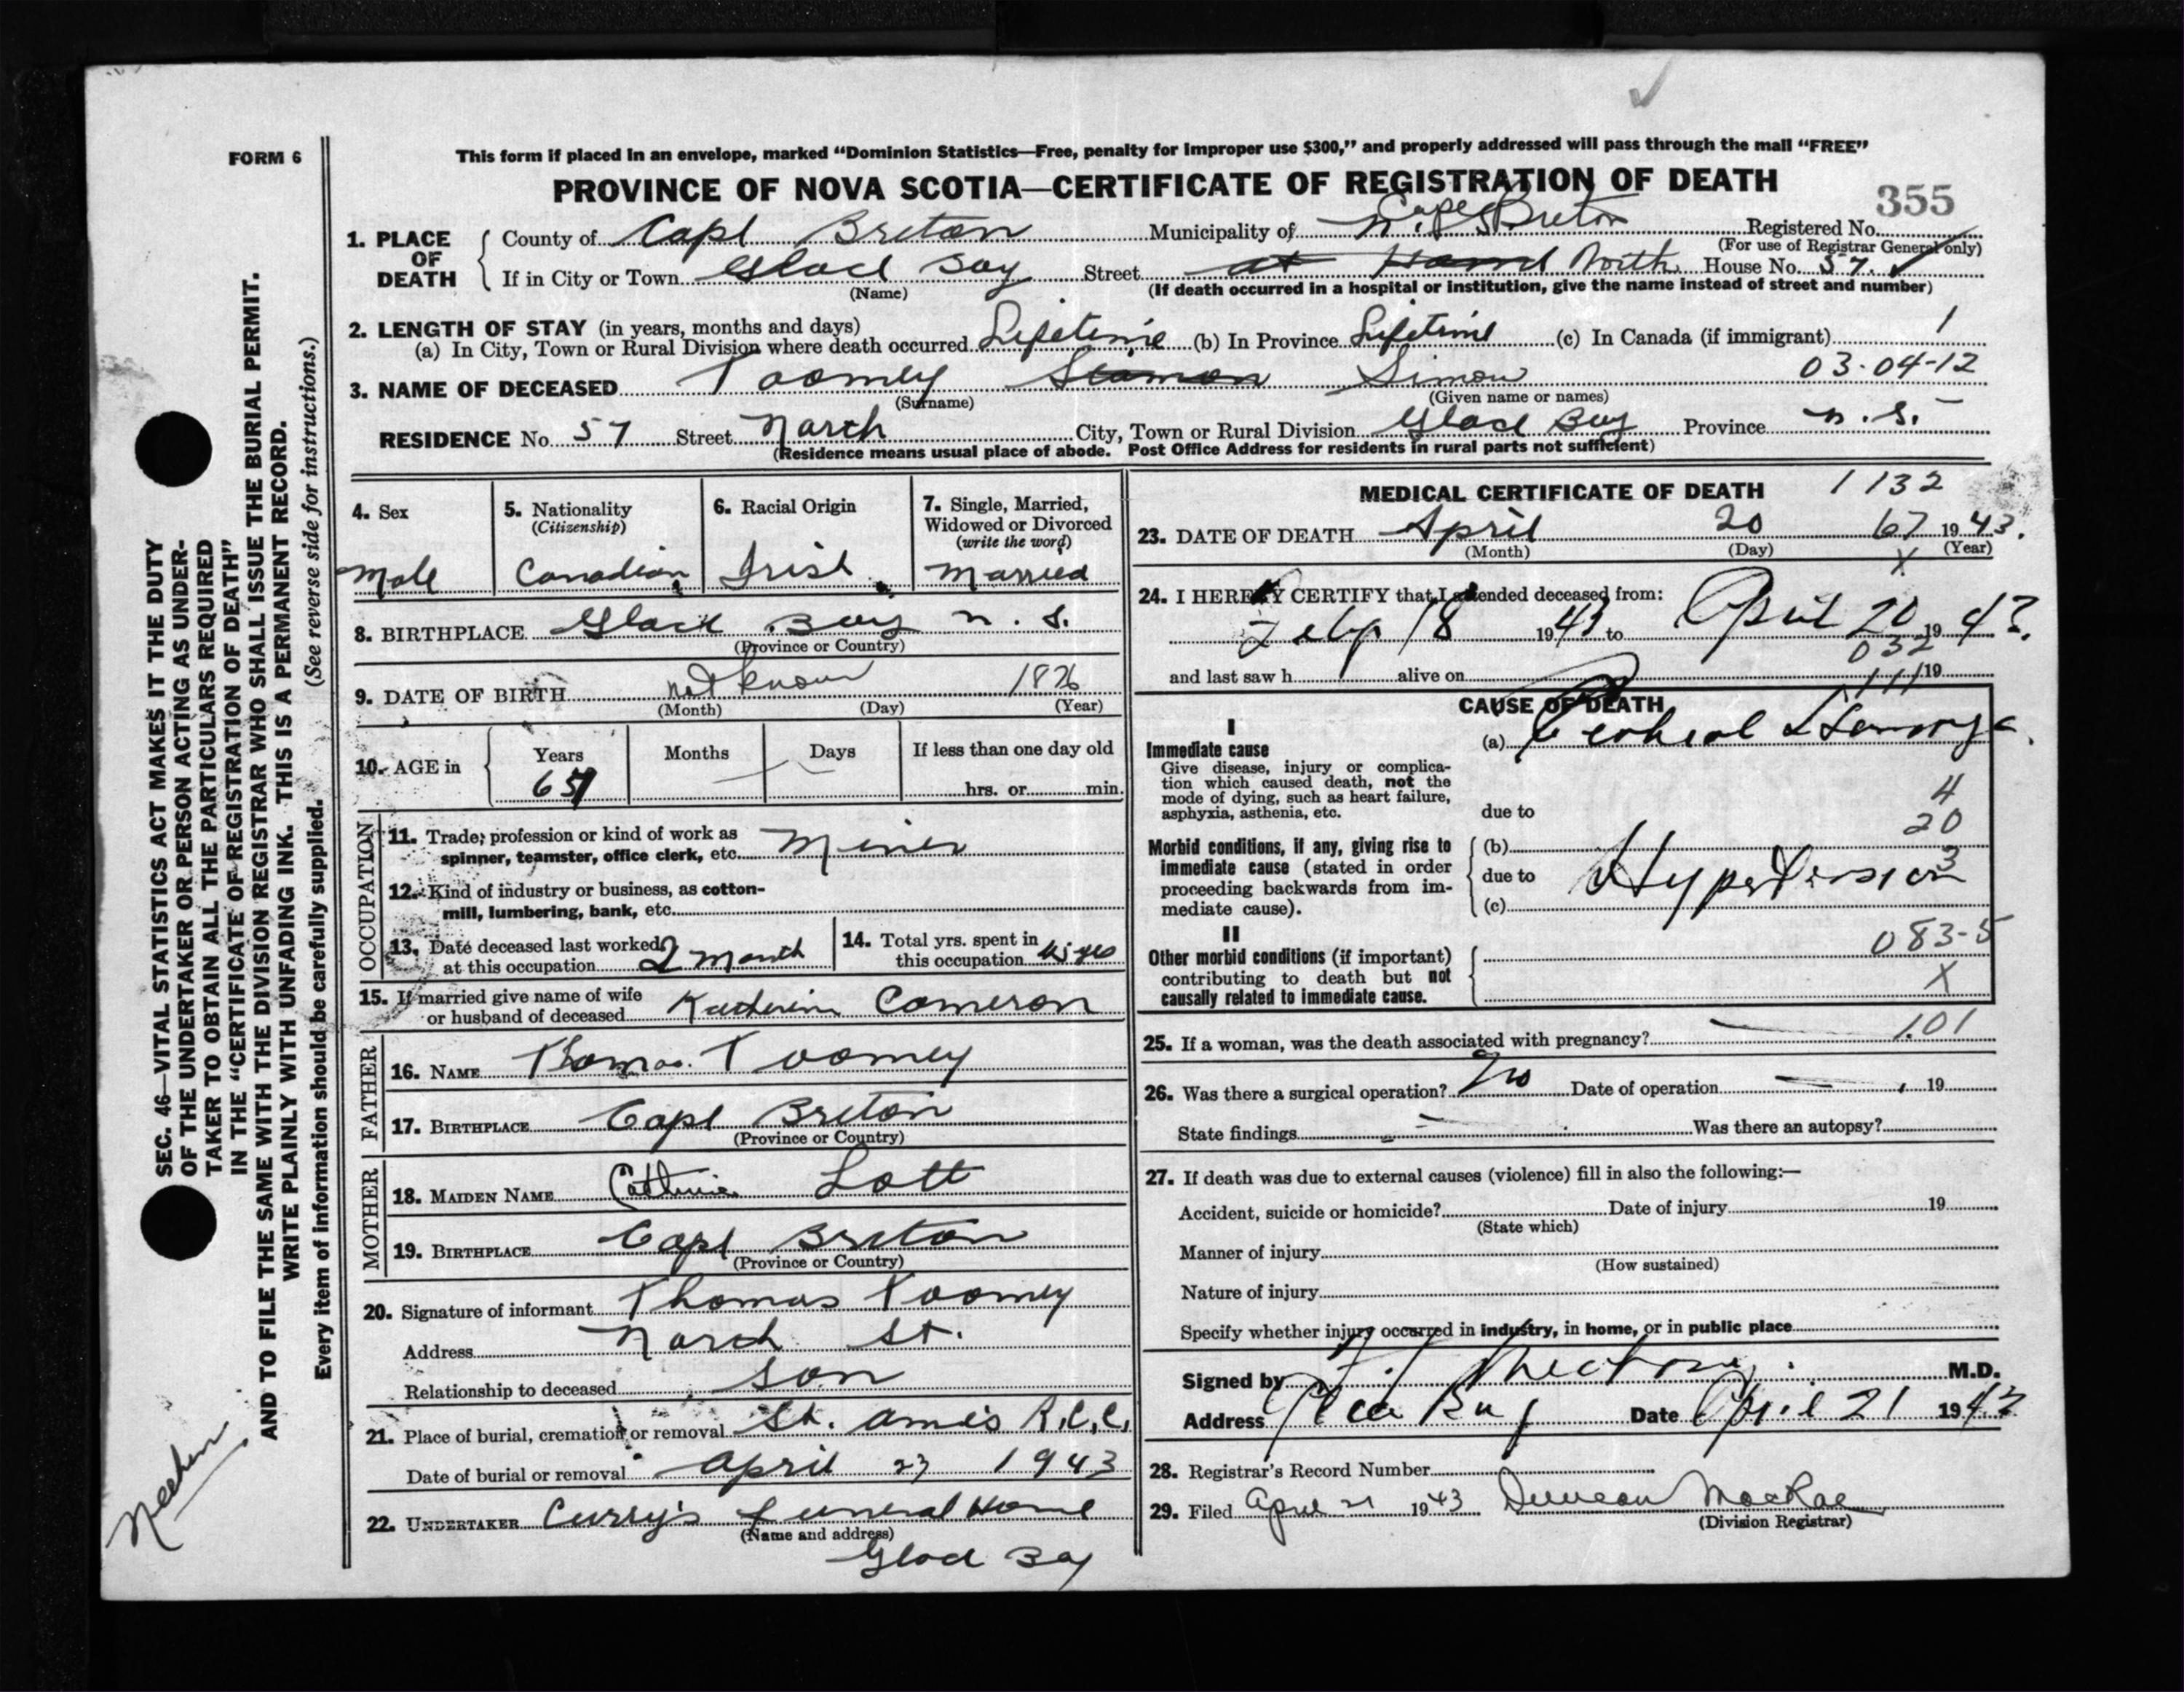 FORM 6
This form if placed in an envelope, marked “Dominion Statistics—Free, penalty for improper use $300,” and properly addressed will pass through the mail “FREE”
PROVINCE OF NOVA SCOTIA—CERTIFICATE OF REGISTRATION OF DEATH
355
1. PLACE OF DEATH
County of Cape Breton Municipality of Cape Breton Registered No.
(For use of Registrar General only)
If in City or Town Glace Bay Street at Home North House No. 57.
(Name) (If death occurred in a hospital or institution, give the name instead of street and number)
2. LENGTH OF STAY (in years, months and days)
(a) In City, Town or Rural Division where death occurred Lifetime (b) In Province Lifetime (c) In Canada (if immigrant) 1
03-04-12
3. NAME OF DECEASED Toomey Simon
(Surname) (Given name or names)
RESIDENCE No. 57 Street North City, Town or Rural Division Glace Bay Province N.S.
(Residence means usual place of abode. Post Office Address for residents in rural parts not sufficient)
4. Sex
Male
5. Nationality
(Citizenship)
Canadian
6. Racial Origin
Irish
7. Single, Married, Widowed or Divorced
(write the word)
Married
8. BIRTHPLACE Glace Bay N.S.
(Province or Country)
9. DATE OF BIRTH not known 1876
(Month) (Day) (Year)
10. AGE in
Years Months Days If less than one day old
67 hrs. or min.
OCCUPATION
11. Trade, profession or kind of work as
spinner, teamster, office clerk, etc. Miner
12. Kind of industry or business, as cotton-
mill, lumbering, bank, etc.
13. Date deceased last worked
at this occupation 2 Month
14. Total yrs. spent in
this occupation
15. If married give name of wife
or husband of deceased Katherine Cameron
FATHER
16. NAME Thomas Toomey
17. BIRTHPLACE Cape Breton
(Province or Country)
MOTHER
18. MAIDEN NAME Catherine Lott
19. BIRTHPLACE Cape Breton
(Province or Country)
20. Signature of informant Thomas Toomey
Address North St.
Relationship to deceased Son
21. Place of burial, cremation or removal St. Anne's R.C.C.
Date of burial or removal April 23 1943
22. UNDERTAKER Curry's Funeral Home
(Name and address)
Glace Bay
MEDICAL CERTIFICATE OF DEATH 1132
23. DATE OF DEATH April 20 67 1943.
(Month) (Day) (Year)
X
24. I HEREBY CERTIFY that I attended deceased from:
Feby 18 1943 to April 20 1943.
032
and last saw h alive on 19
CAUSE OF DEATH
I
Immediate cause
Give disease, injury or complica-
tion which caused death, not the
mode of dying, such as heart failure,
asphyxia, asthenia, etc.
(a) Cerebral Hemorrhage
4
due to
20
Morbid conditions, if any, giving rise to
immediate cause (stated in order
proceeding backwards from im-
mediate cause).
(b)
3
due to Hypertension
(c)
II
083-5
Other morbid conditions (if important)
contributing to death but not
causally related to immediate cause.
X
25. If a woman, was the death associated with pregnancy? 101
26. Was there a surgical operation? No Date of operation 19
State findings Was there an autopsy?
27. If death was due to external causes (violence) fill in also the following:—
Accident, suicide or homicide? Date of injury 19
(State which)
Manner of injury
(How sustained)
Nature of injury
Specify whether injury occurred in industry, in home, or in public place
Signed by M.D.
Address Glace Bay Date April 21 1943
28. Registrar's Record Number
29. Filed April 21 1943 Duncan MacRae
(Division Registrar)
SEC. 46—VITAL STATISTICS ACT MAKES IT THE DUTY
OF THE UNDERTAKER OR PERSON ACTING AS UNDER-
TAKER TO OBTAIN ALL THE PARTICULARS REQUIRED
IN THE “CERTIFICATE OF REGISTRATION OF DEATH”
AND TO FILE THE SAME WITH THE DIVISION REGISTRAR WHO SHALL ISSUE THE BURIAL PERMIT.
WRITE PLAINLY WITH UNFADING INK. THIS IS A PERMANENT RECORD.
Every item of information should be carefully supplied. (See reverse side for instructions.)